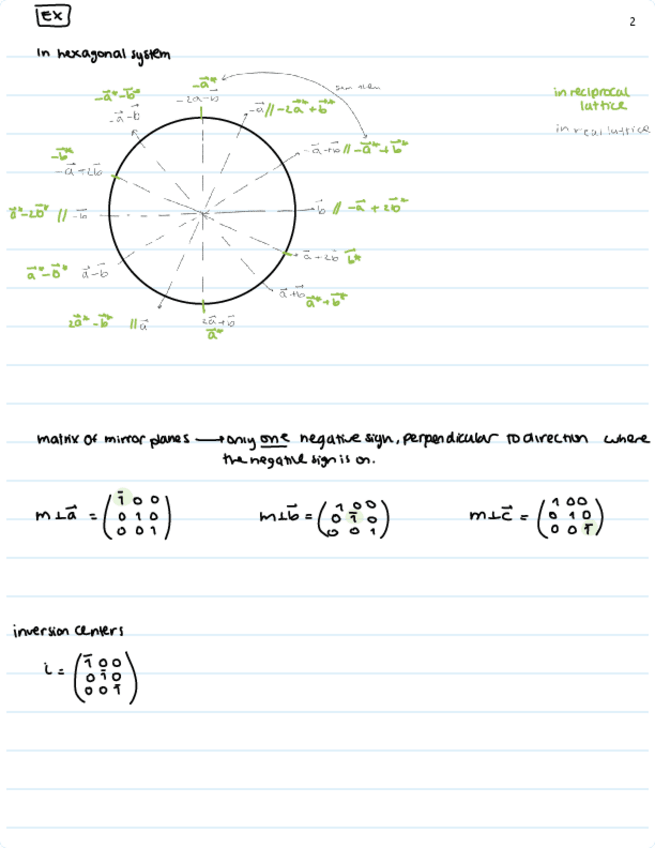 EX
2
In hexagonal system
-a⃗*
-a⃗*-b⃗*
-2a⃗-b⃗
in reciprocal
lattice
-a⃗-b⃗
-a⃗ // -2a⃗*+b⃗*
in real lattice
-b⃗*
-a⃗+b⃗ // -a⃗*+b⃗*
-a⃗+2b⃗
a⃗*-2b⃗* // -b⃗
b⃗ // -a⃗*+2b⃗*
a⃗+2b⃗ b⃗*
a⃗*-b⃗* a⃗-b⃗
a⃗+b⃗ a⃗*+b⃗*
2a⃗*-b⃗* // a⃗
2a⃗+b⃗
a⃗*
matrix of mirror planes → only one negative sign, perpendicular to direction where
the negative sign is on.
m⊥a⃗ = (1̄ 0 0
0 1 0
0 0 1)
m⊥b⃗ = (1 0 0
0 1̄ 0
0 0 1)
m⊥c⃗ = (1 0 0
0 1 0
0 0 1̄)
inversion centers
i = (1̄ 0 0
0 1̄ 0
0 0 1̄)